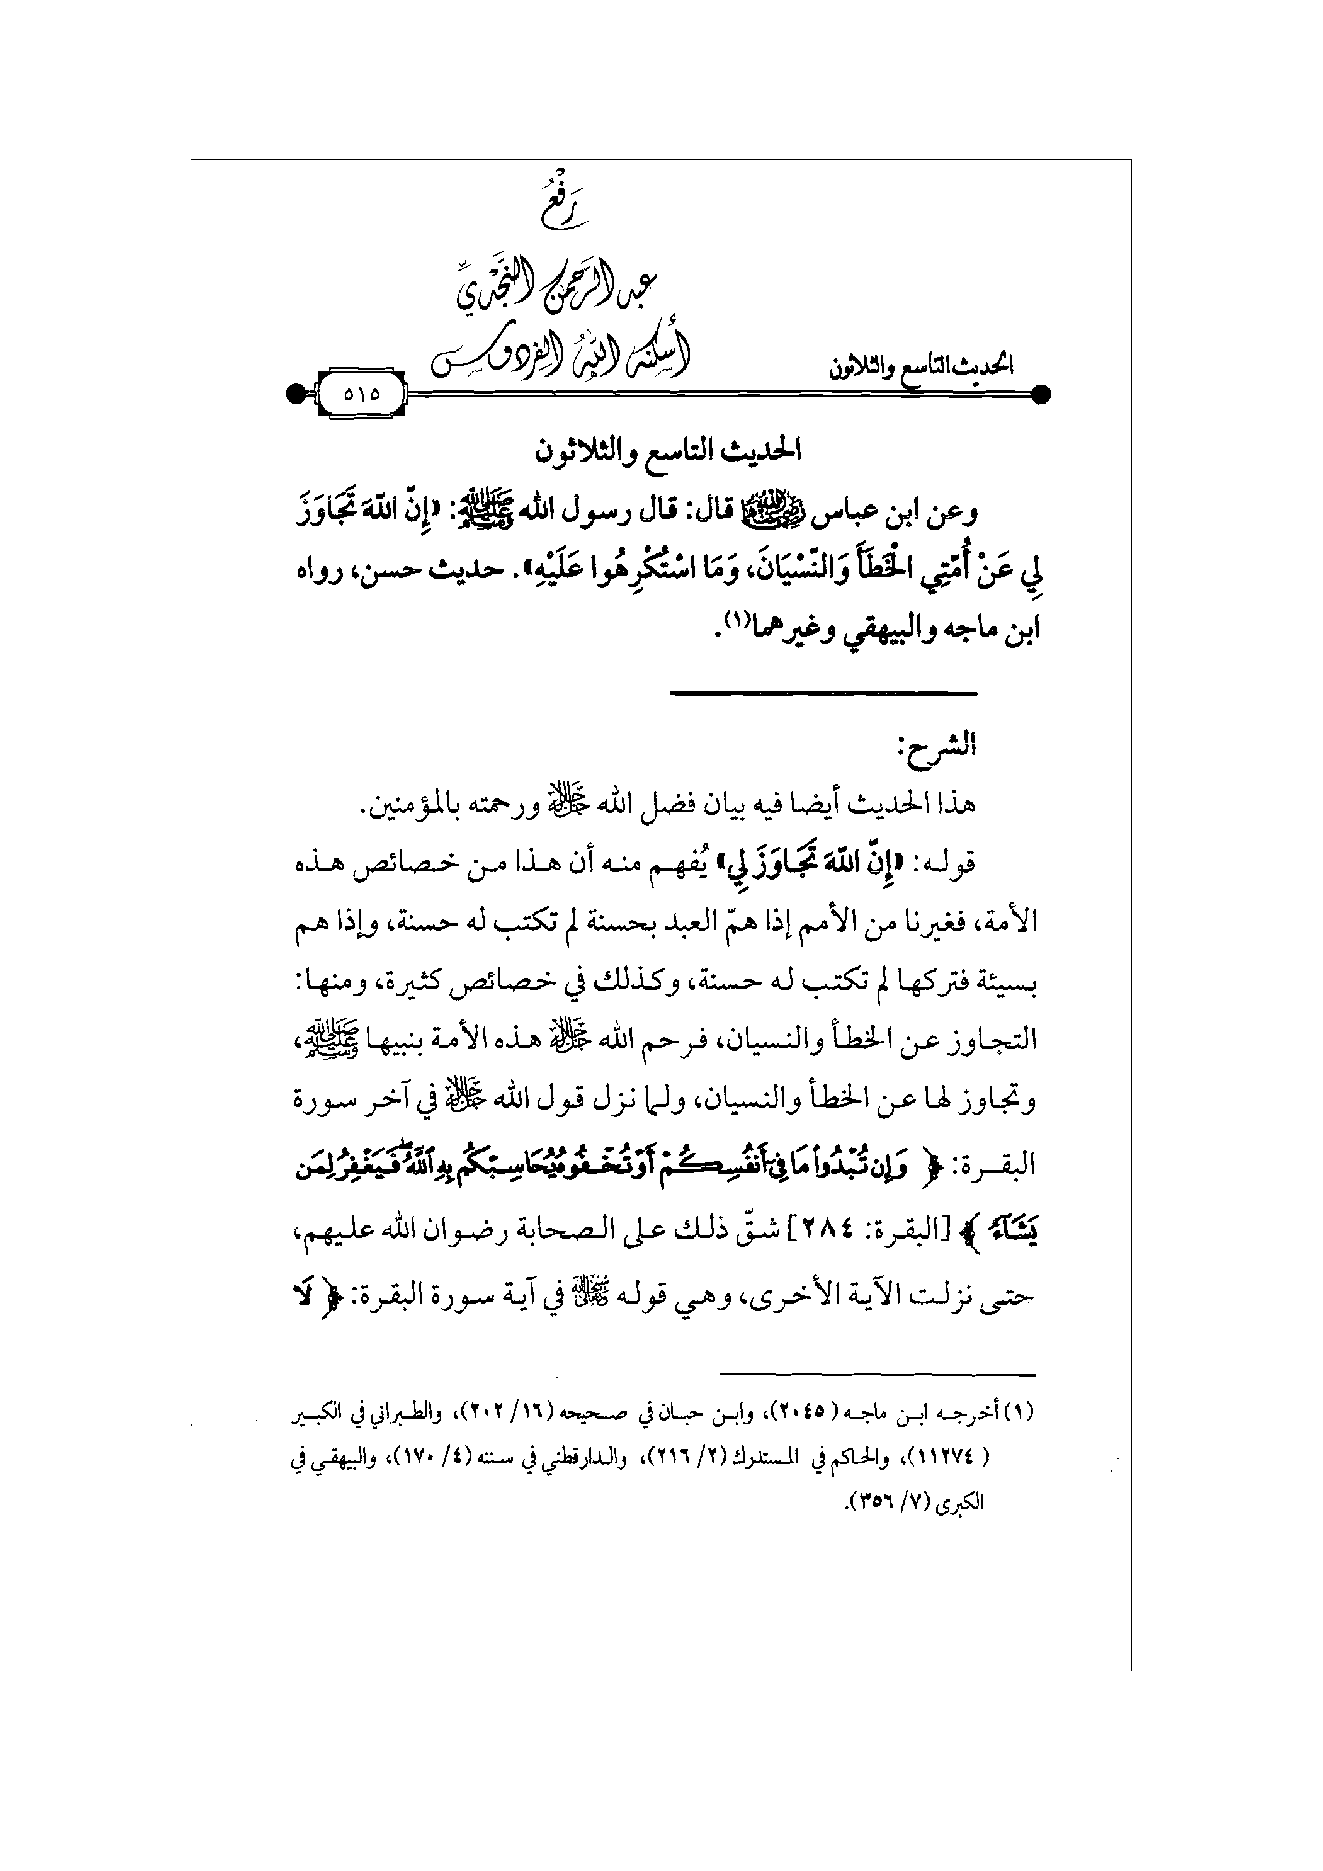 رَفْعُ
عبد الرحمن النَّجْدِيِّ
أسكنه الله الفردوس
الحديث التاسع والثلاثون
٥١٥
الحديث التاسع والثلاثون
وعن ابن عباس رضي الله عنهما قال: قال رسول الله ﷺ: «إِنَّ اللهَ تَجَاوَزَ
لِي عَنْ أُمَّتِي الْخَطَأَ وَالنِّسْيَانَ، وَمَا اسْتُكْرِهُوا عَلَيْهِ». حديث حسن، رواه
ابن ماجه والبيهقي وغيرهما(١).
الشرح:
هذا الحديث أيضا فيه بيان فضل الله ﷻ ورحمته بالمؤمنين.
قوله: «إِنَّ اللهَ تَجَاوَزَ لِي» يُفهم منه أن هذا من خصائص هذه
الأمة، فغيرنا من الأمم إذا همّ العبد بحسنة لم تكتب له حسنة، وإذا هم
بسيئة فتركها لم تكتب له حسنة، وكذلك في خصائص كثيرة، ومنها:
التجاوز عن الخطأ والنسيان، فرحم الله ﷻ هذه الأمة بنبيها ﷺ،
وتجاوز لها عن الخطأ والنسيان، ولما نزل قول الله ﷻ في آخر سورة
البقرة: ﴿ وَإِن تُبْدُوا۟ مَا فِىٓ أَنفُسِكُمْ أَوْ تُخْفُوهُ يُحَاسِبْكُم بِهِ ٱللَّهُ ۖ فَيَغْفِرُ لِمَن
يَشَآءُ ﴾ [البقرة: ٢٨٤] شقّ ذلك على الصحابة رضوان الله عليهم،
حتى نزلت الآية الأخرى، وهي قوله ﷻ في آية سورة البقرة: ﴿ لَا
(١) أخرجه ابن ماجه (٢٠٤٥)، وابن حبان في صحيحه (١٦/ ٢٠٢)، والطبراني في الكبير
(١١٢٧٤)، والحاكم في المستدرك (٢/ ٢١٦)، والدارقطني في سننه (٤/ ١٧٠)، والبيهقي في
الكبرى (٧/ ٣٥٦).